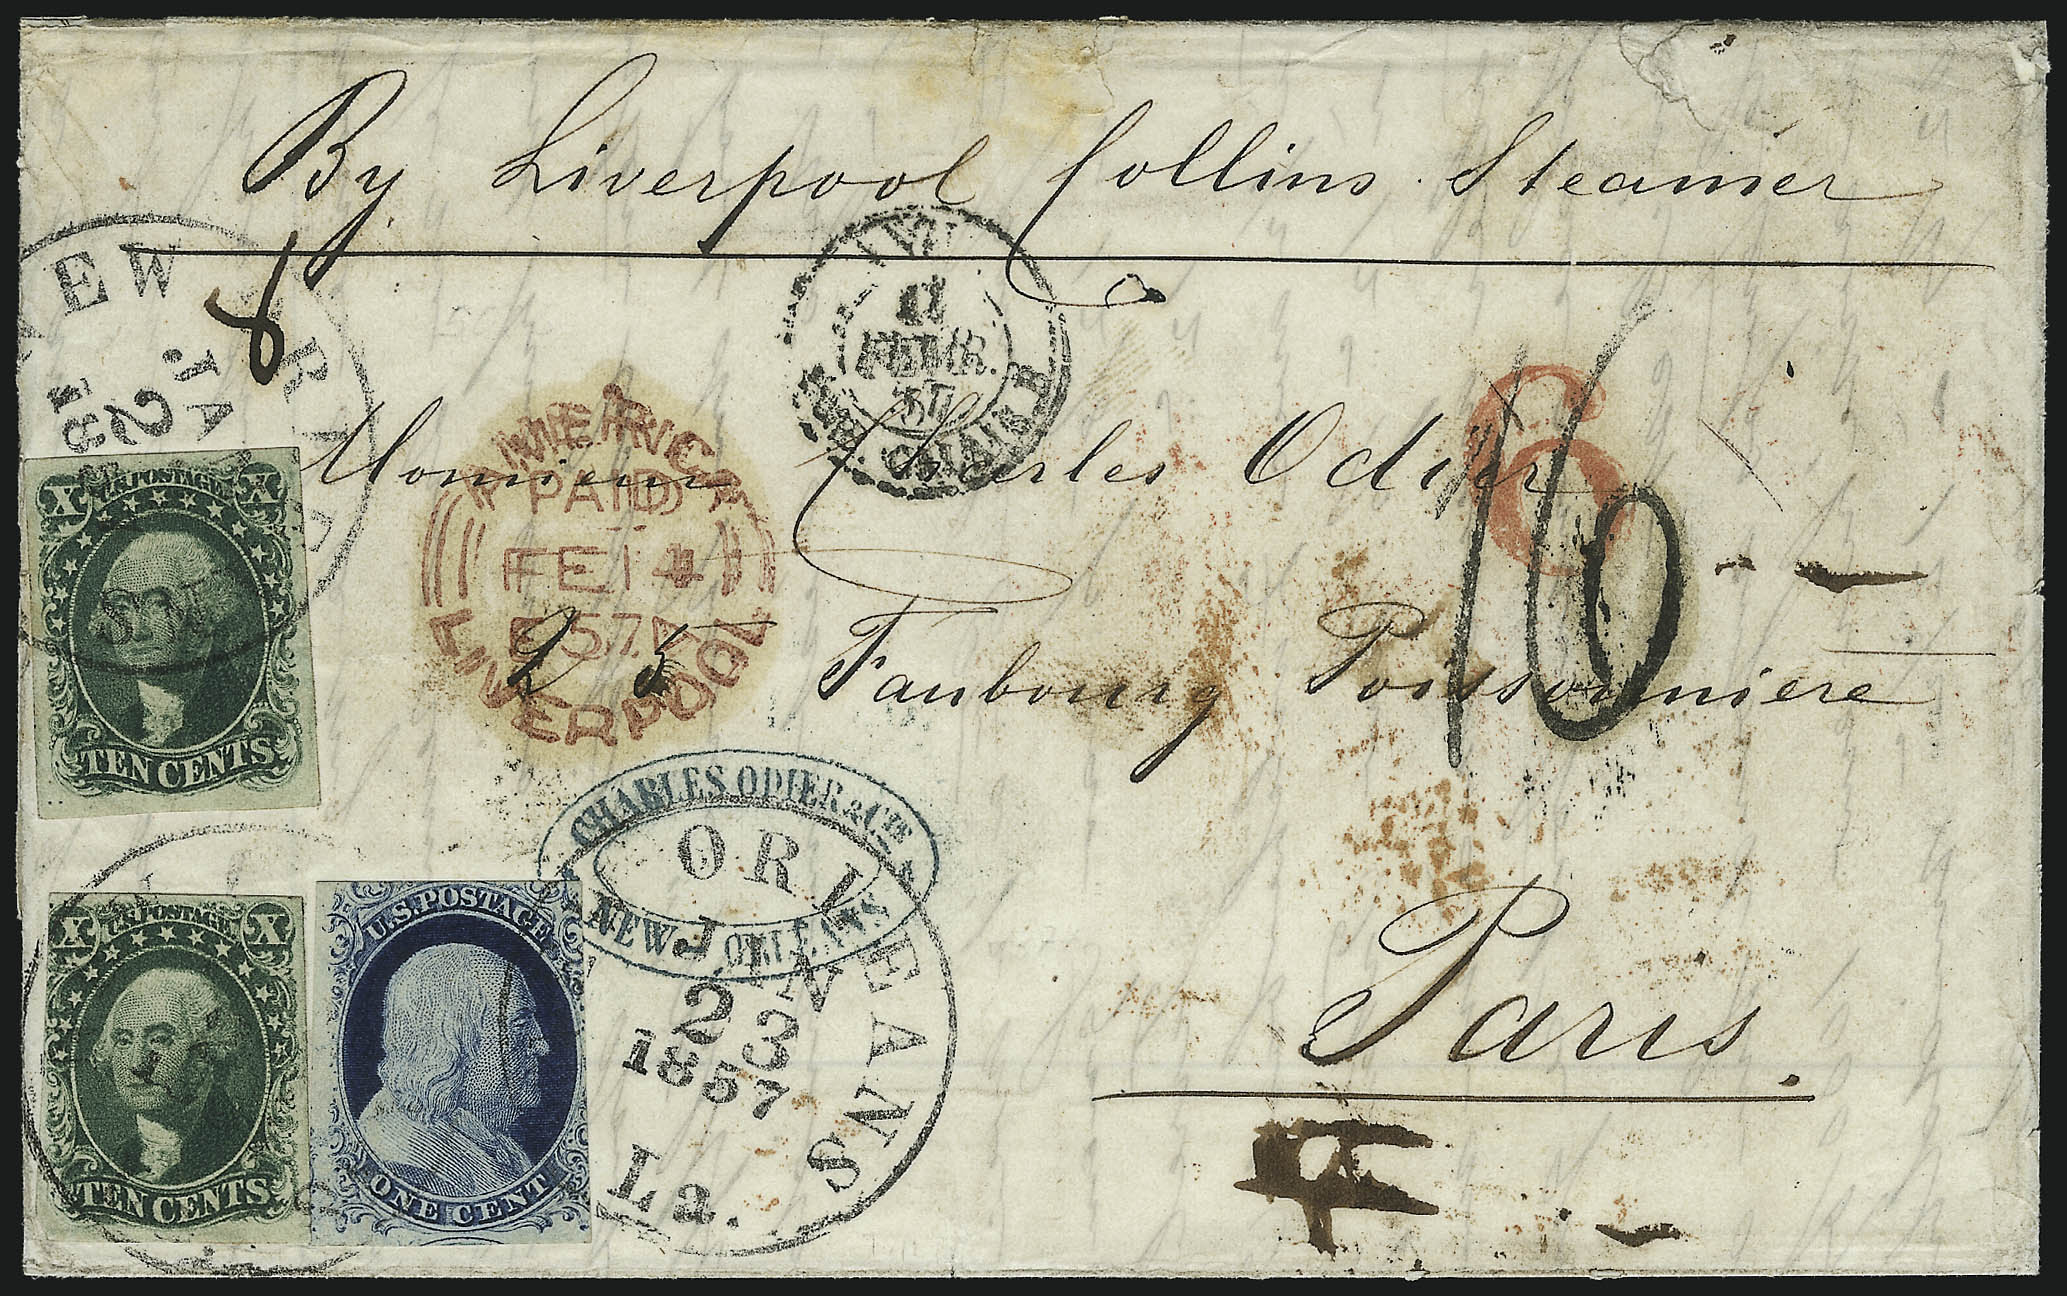 By Liverpool Collins Steamer
8
NEW ORLEANS
JAN
23
18
17
FEVR.
57
CALAIS
AMERICA
PAID
FE 14
57
LIVERPOOL
6
16
Monsieur Charles Odier
25 Faubourg Poissonniere
Paris
X U.S.POSTAGE X
TEN CENTS
CHARLES ODIER & CIE
NEW ORLEANS
X U.S.POSTAGE X
TEN CENTS
U.S.POSTAGE
ONE CENT
ORLEANS
JAN
23
1857
La.